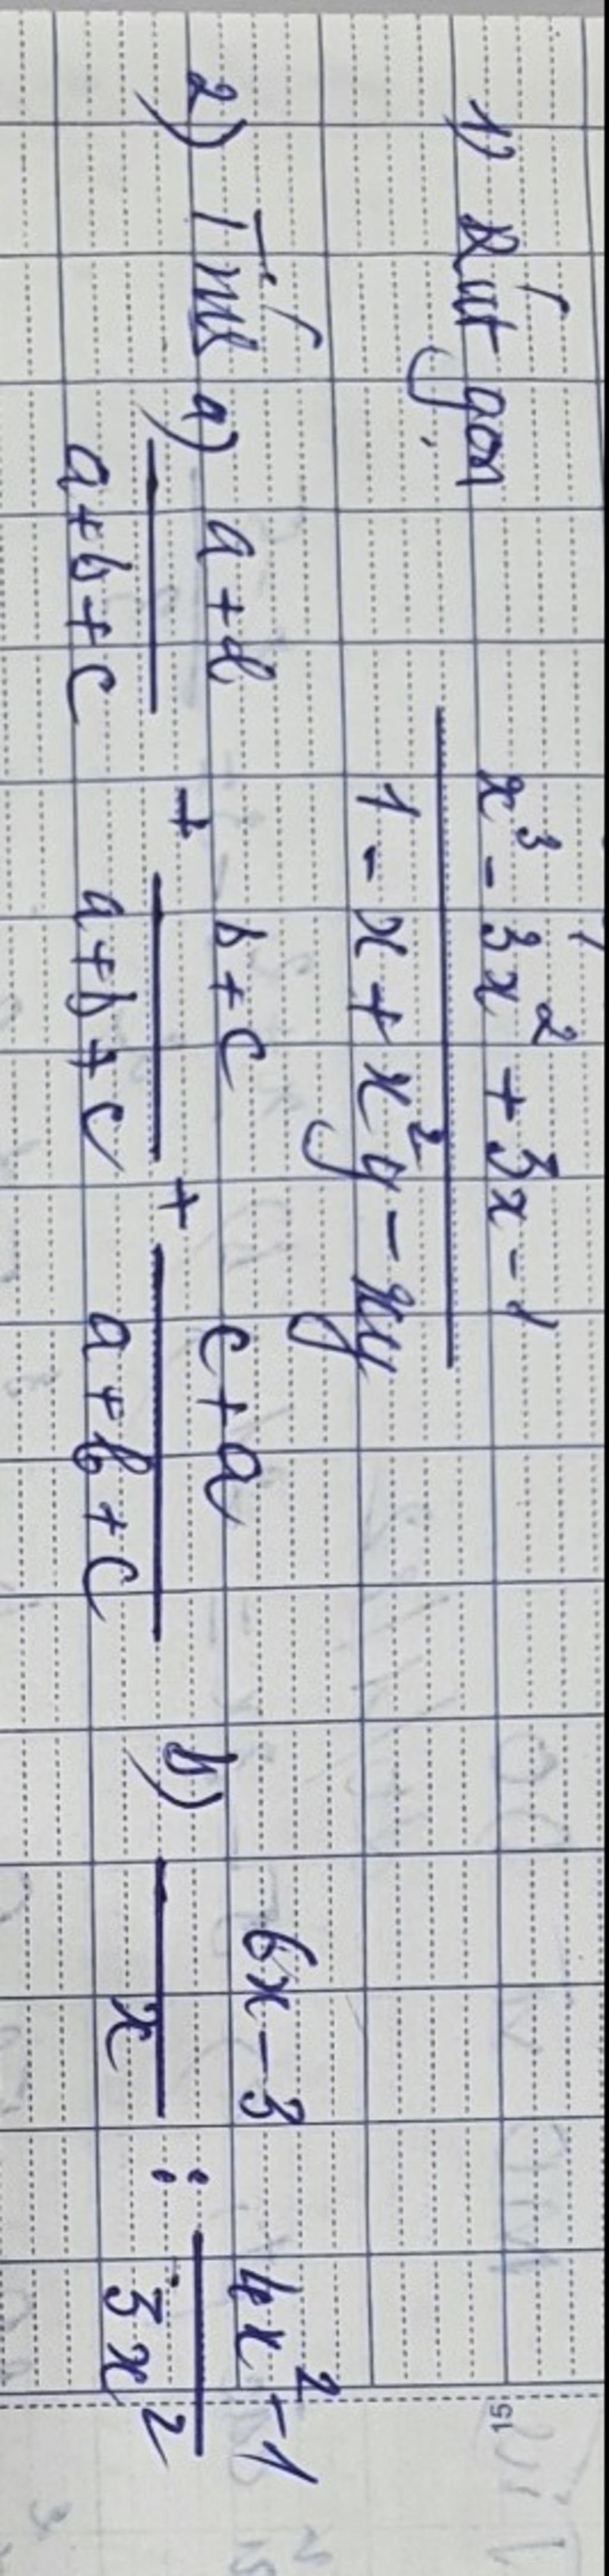 1) Rút gọn
x³ - 3x² + 3x - 1
1 - x + x²y - xy
2) Tính a) a+b / a+b+c + b+c / a+b+c + c+a / a+b+c b) 6x-3 / x : 4x²-1 / 3x²
15